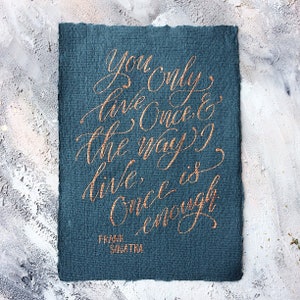 You Only
live Once &
the way I
live,
Once is
enough
FRANK
SINATRA